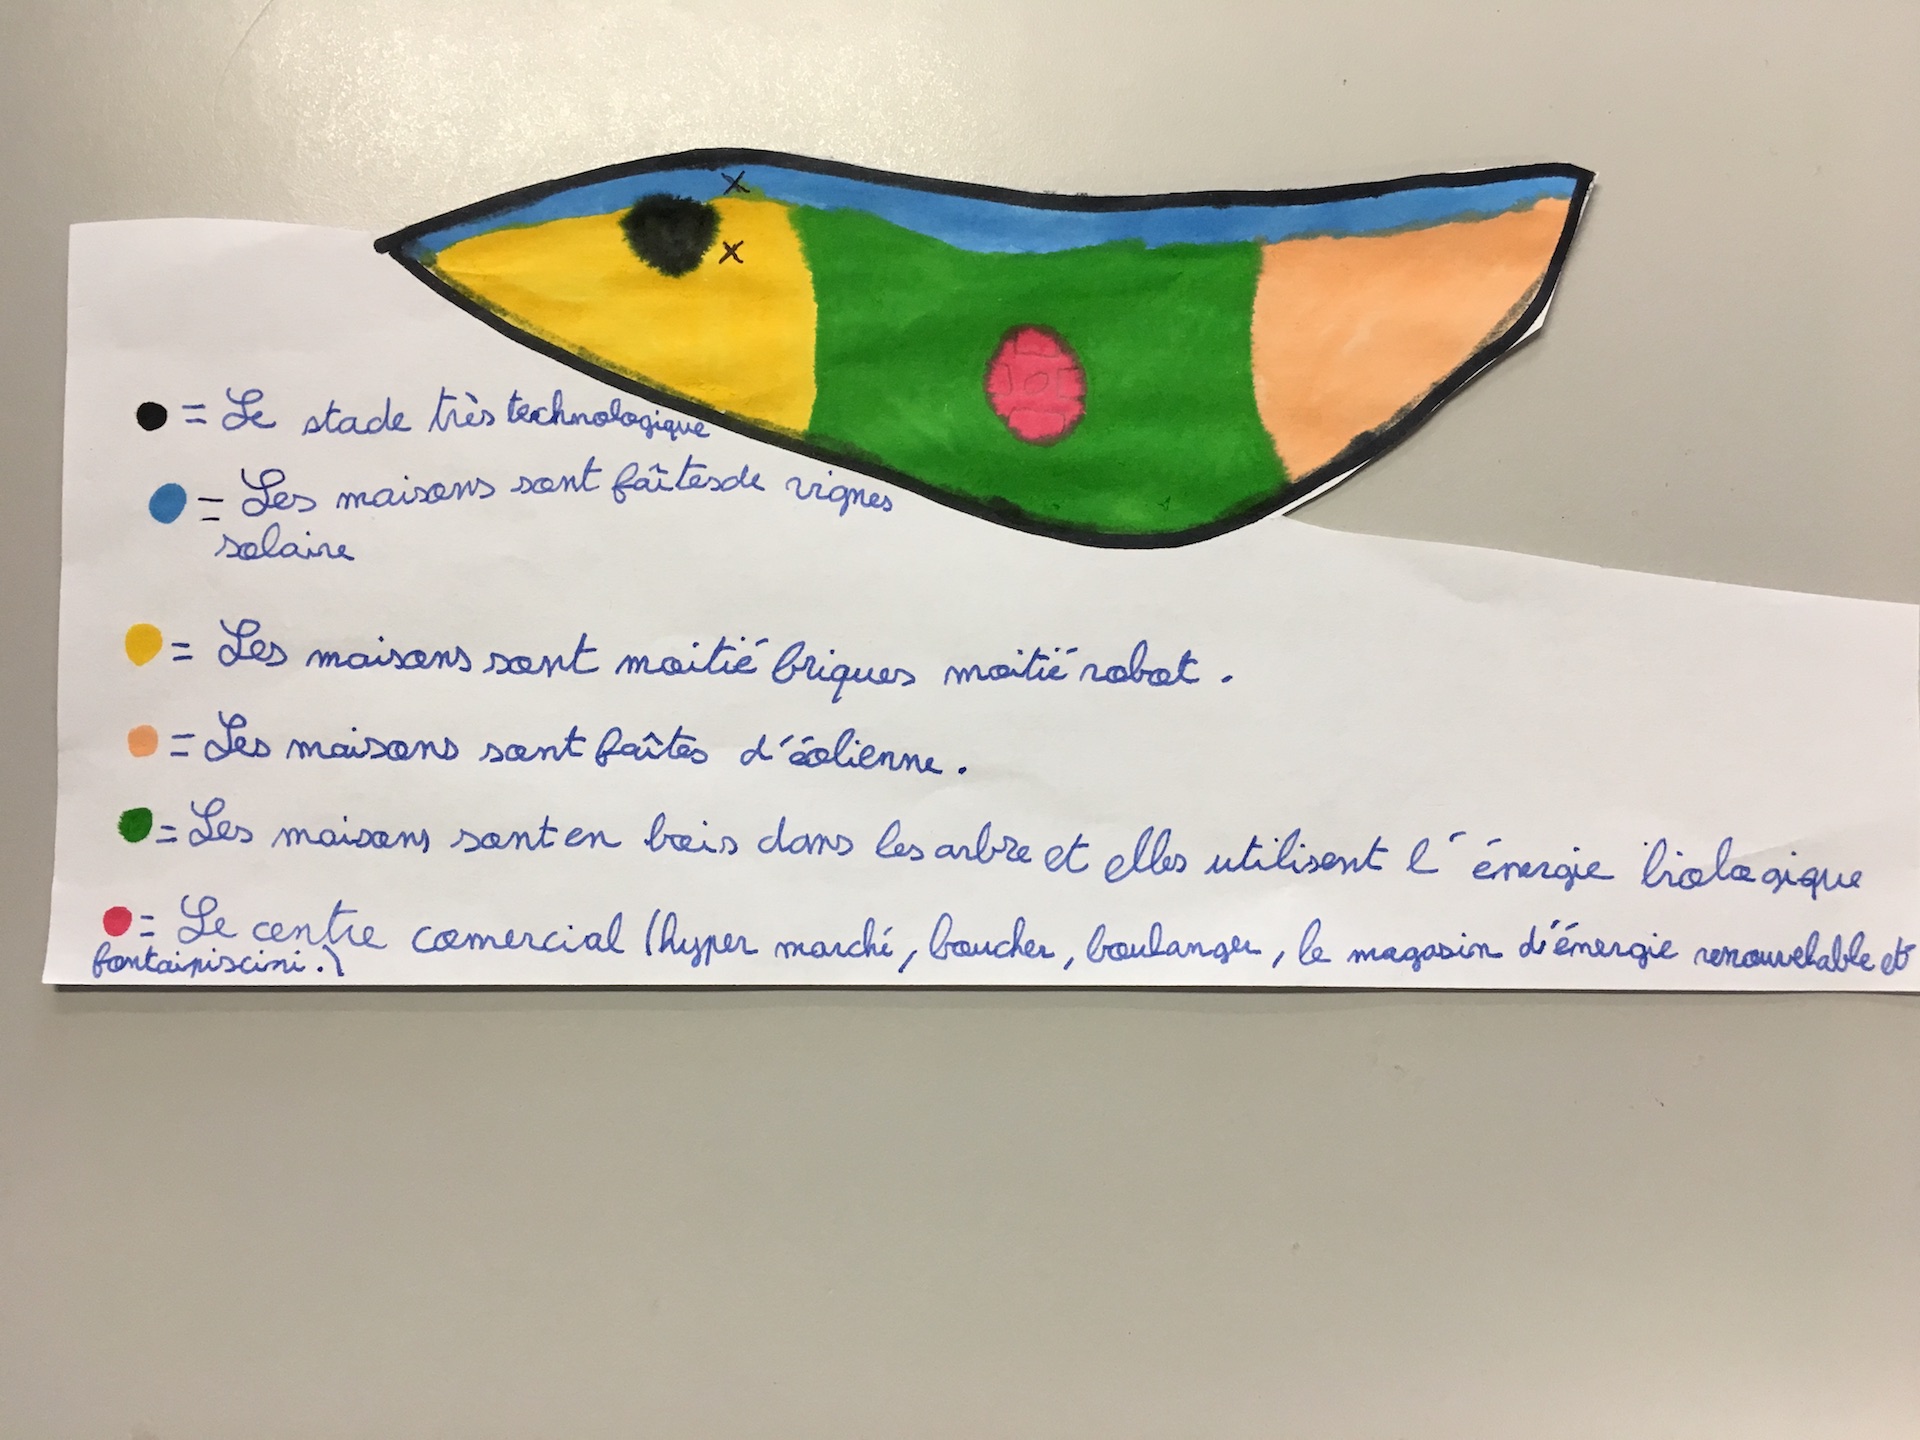 = Le stade très technologique
= Les maisons sont faîtes de vignes
solaire
= Les maisons sont moitié briques moitié robot.
= Les maisons sont faîtes d'éolienne.
= Les maisons sont en bois dans les arbre et elles utilisent l'énergie biologique
= Le centre comercial (hyper marché, boucher, boulanger, le magasin d'énergie renouvelable et
fontainiscini.)
x
x